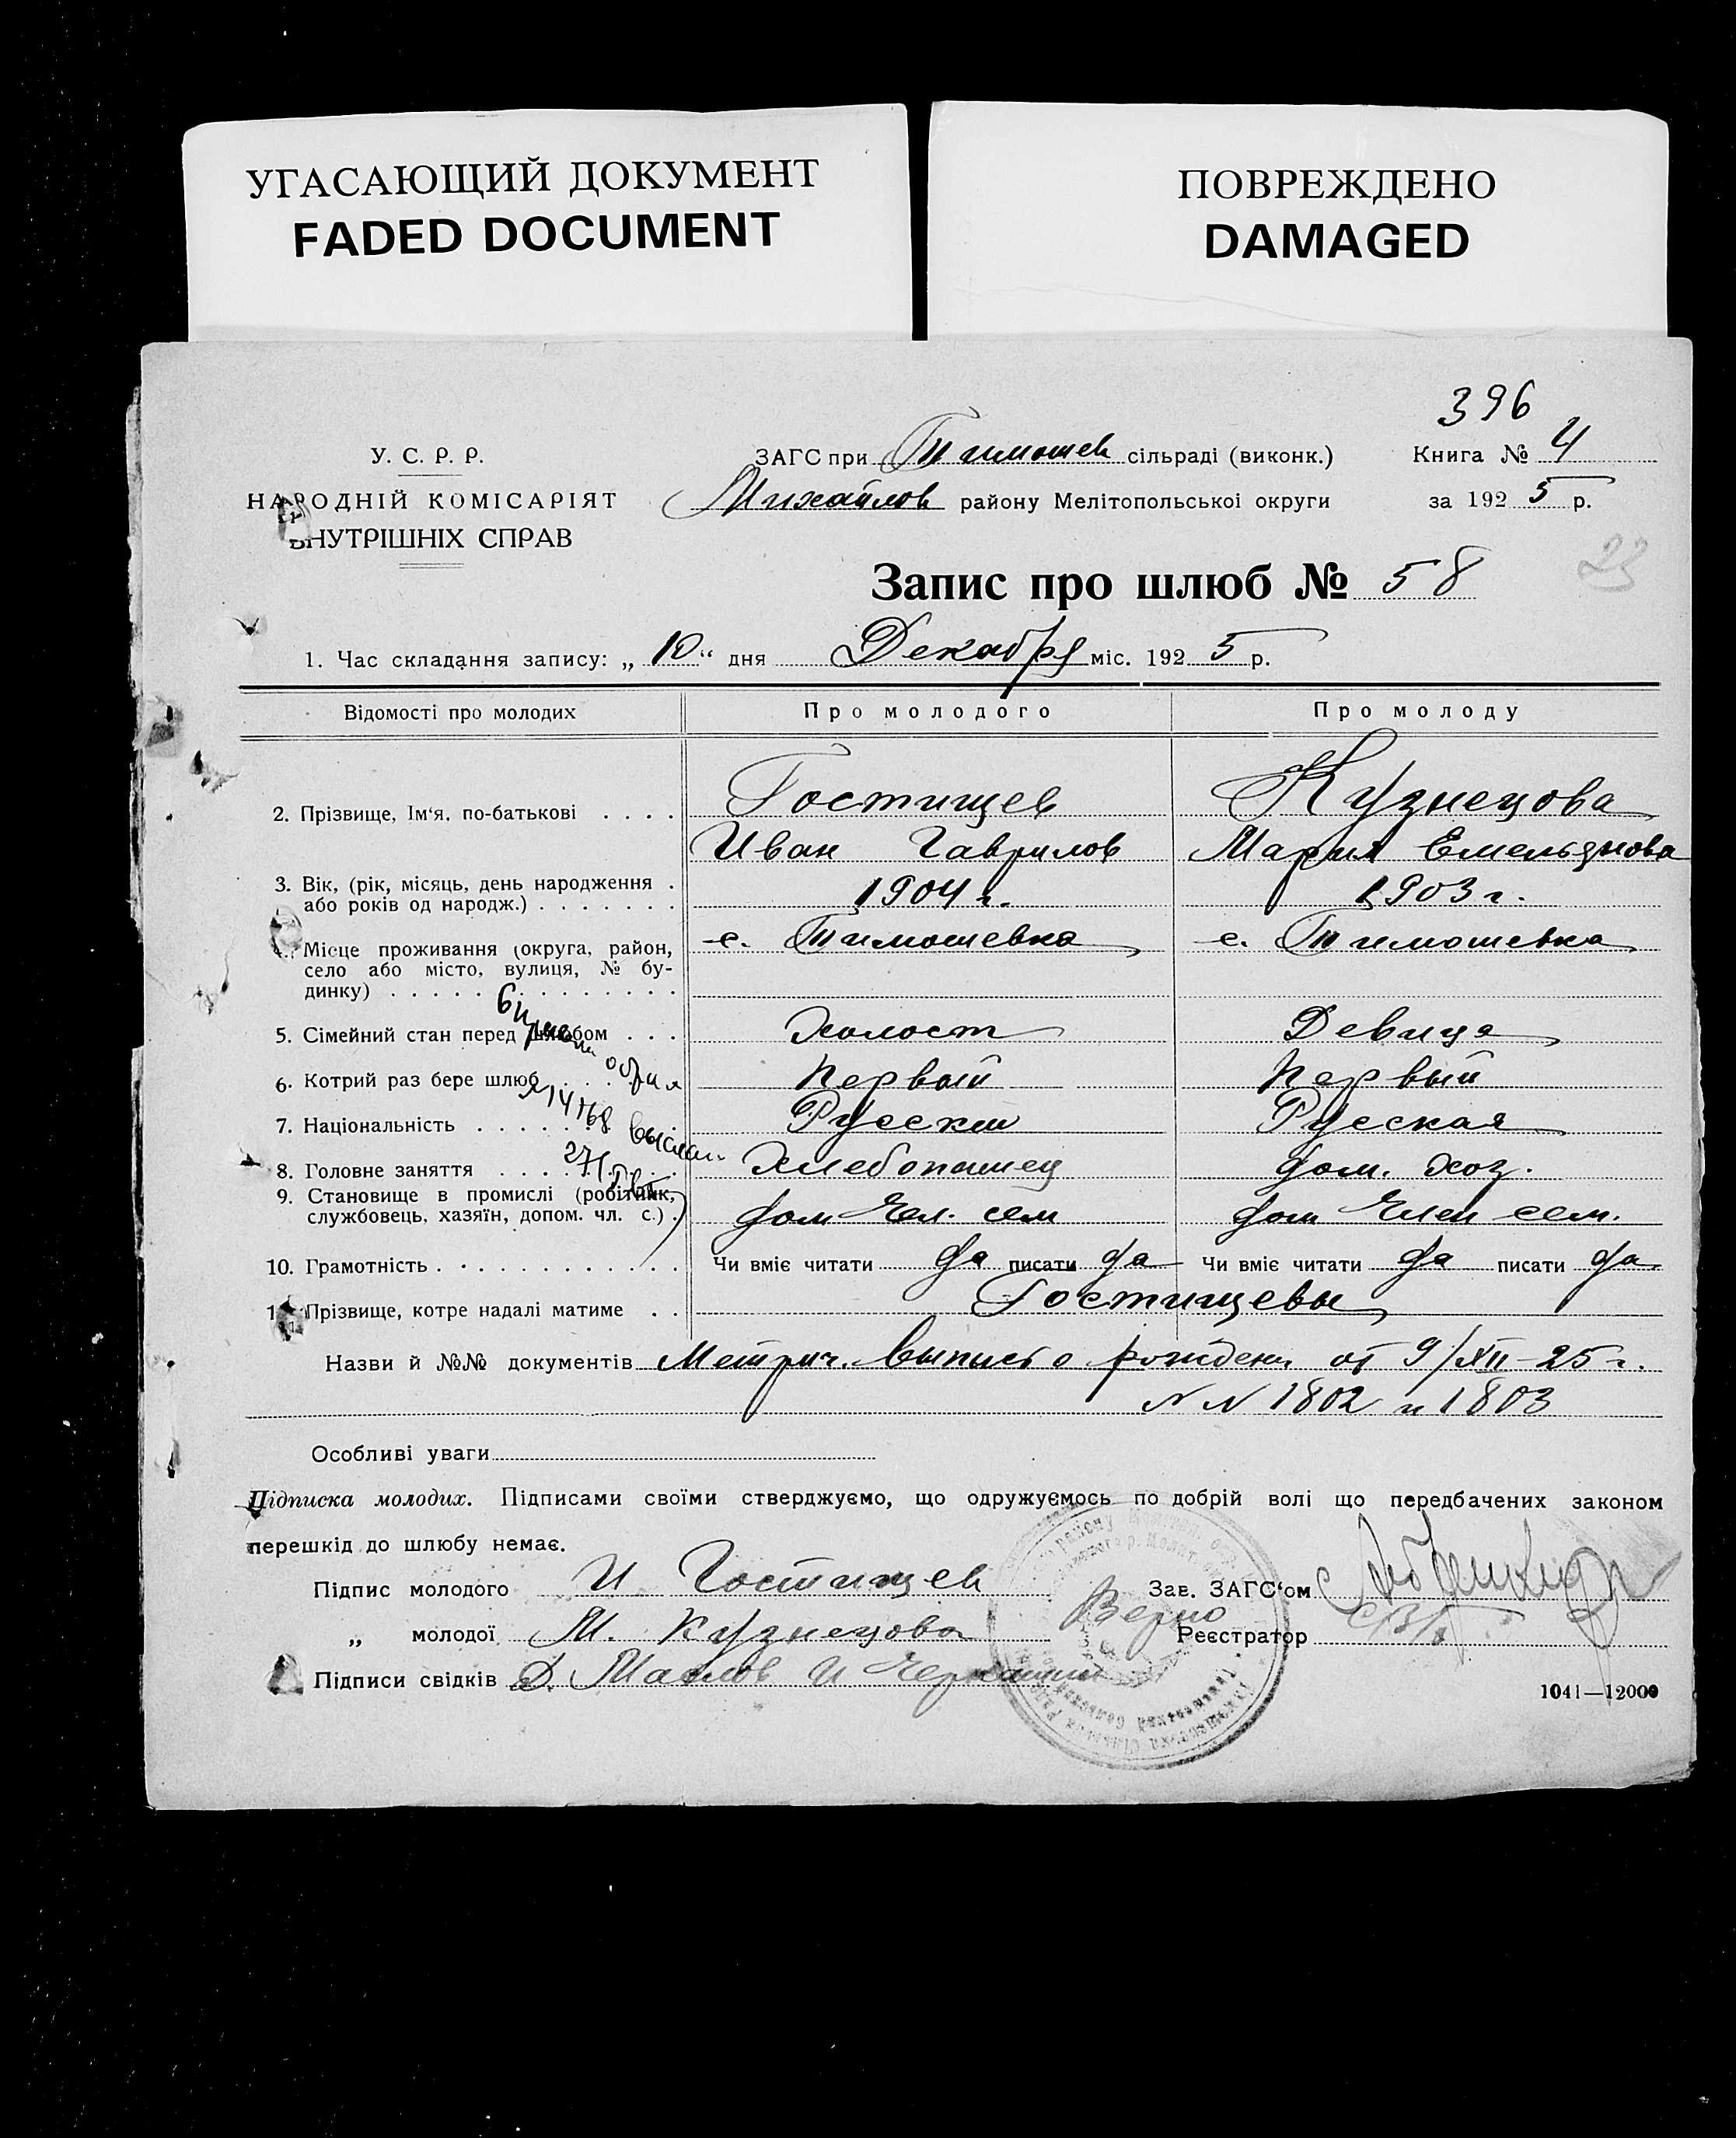 УГАСАЮЩИЙ ДОКУМЕНТ
FADED DOCUMENT
ПОВРЕЖДЕНО
DAMAGED
396
У. С. Р. Р.
НАРОДНІЙ КОМІСАРІЯТ
ВНУТРІШНІХ СПРАВ
ЗАГС при Тимошев сільраді (виконк.)
Михайлов району Мелітопольської округи
Книга № 4
за 1925 р.
23
Запис про шлюб № 58
1. Час складання запису: „ 10 “ дня Декабря міс. 1925 р.
Відомості про молодих Про молодого Про молоду
2. Прізвище, Ім‘я, по-батькові . . . . Гостищев Кузнецова
Иван Гаврилов Мария Емельянова
3. Вік, (рік, місяць, день народження . 1904 г. 1903 г.
або років од народж.) . . . . . . .
Місце проживання (округа, район, с. Тимошевка с. Тимошевка
село або місто, вулиця, № бу-
динку) . . . . . . . . . . . . . .
5. Сімейний стан перед шлюбом . . . Холост Девица
6. Котрий раз бере шлюб . . . . Первый Первый
7. Національність . . . . . . . . Русский Русская
8. Головне заняття . . . . . . . Хлебопашец дом. хоз.
9. Становище в промислі (робітник,
службовець, хазяїн, допом. чл. с.) . дом Чл. сем дом Член сем.
10. Грамотність . . . . . . . . . . . Чи вміє читати да писати да Чи вміє читати да писати да
Прізвище, котре надалі матиме . . Гостищевы
Назви й №№ документів Метрич. выпись о рожден. от 9/XII-25 г.
N N 1802 и 1803
Особливі уваги
Підписка молодих. Підписами своїми стверджуємо, що одружуємось по добрій волі що передбачених законом
перешкід до шлюбу немає.
Підпис молодого И Гостищев
Зав. ЗАГС‘ом
„ молодої М. Кузнецова
Верно
Реєстратор
Підписи свідків Д. Маслов И
1041—12000